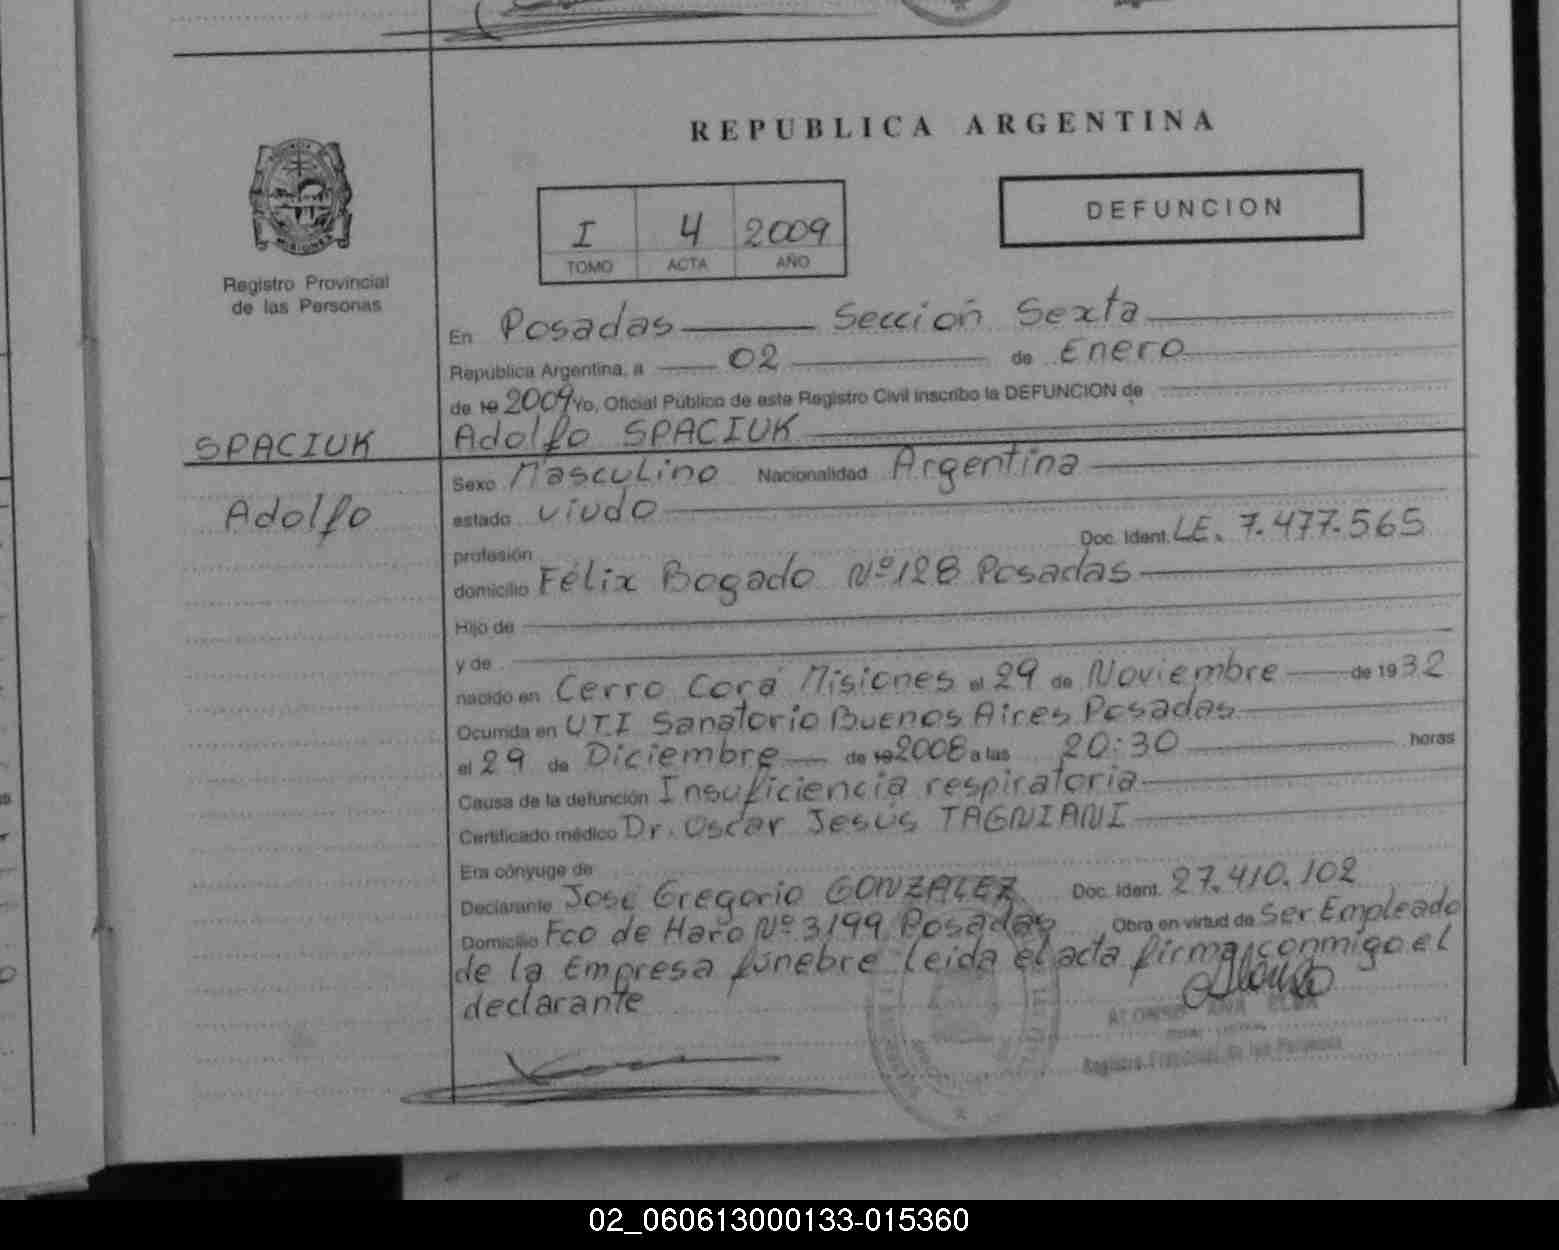 REPUBLICA ARGENTINA
MISIONES
Registro Provincial
de las Personas
I 4 2009
TOMO ACTA AÑO
DEFUNCION
En Posadas Sección Sexta
República Argentina, a 02 de Enero
de 19 2009 Yo, Oficial Público de este Registro Civil inscribo la DEFUNCION de
SPACIUK Adolfo SPACIUK
Sexo Masculino Nacionalidad Argentina
Adolfo
estado viudo
profesión Doc. Ident. LE. 7.477.565
domicilio Félix Bogado Nº 128 Posadas
Hijo de
y de
nacido en Cerro Corá Misiones el 29 de Noviembre de 1932
Ocurrida en UTI Sanatorio Buenos Aires Posadas
el 29 de Diciembre de 19 2008 a las 20:30 horas
Causa de la defunción Insuficiencia respiratoria
Certificado médico Dr. Oscar Jesús TAGNIANI
Era cónyuge de
Declarante José Gregorio GONZALEZ Doc. Ident. 27.410.102
Domicilio Fco de Haro Nº 3199 Posadas Obra en virtud de Ser Empleado
de la Empresa fúnebre leida el acta firma conmigo el
declarante
ALONSO ANA ELBA
Registro Provincial de las Personas
02_060613000133-015360